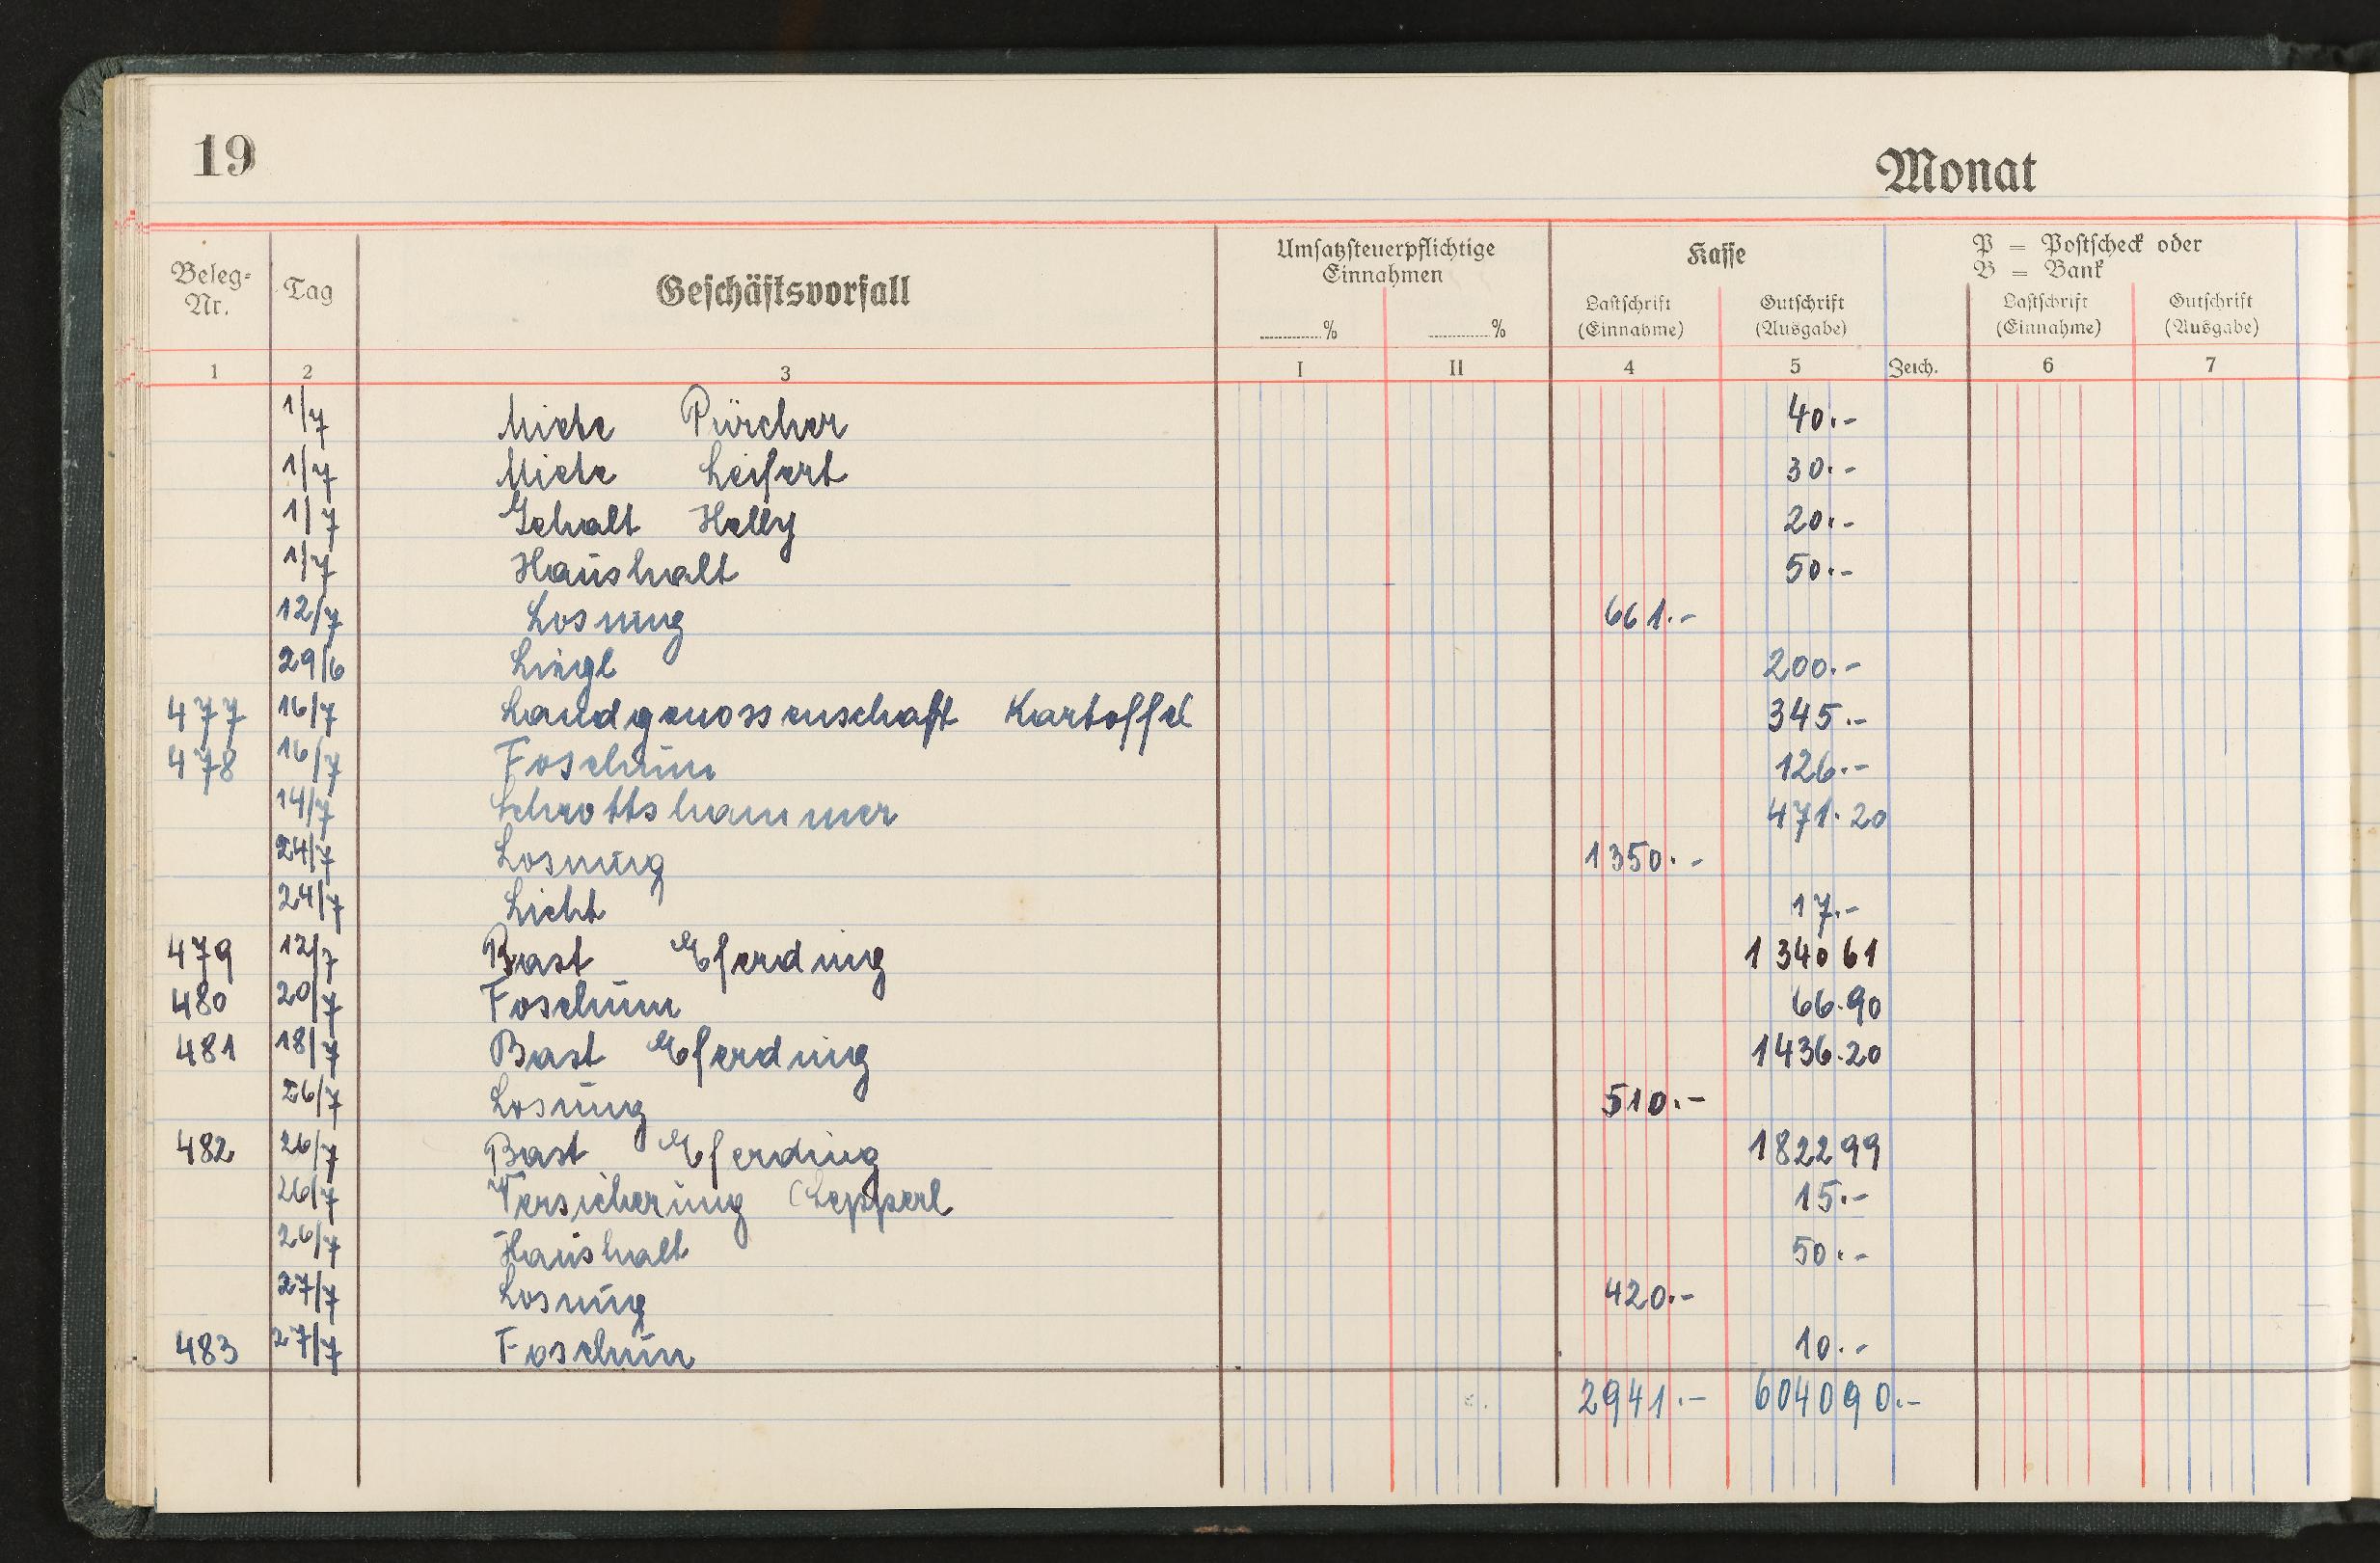 19
Monat
Beleg-Nr. Tag Geschäftsvorfall Umsatzsteuerpflichtige Einnahmen Kasse P = Postscheck oder B = Bank
% % Lastschrift (Einnahme) Gutschrift (Ausgabe) Lastschrift (Einnahme) Gutschrift (Ausgabe)
1 2 3 I II 4 5 Zeich. 6 7
1/7 Miete Pürcher 40.-
1/7 Miete Leifert 30.-
1/7 Gehalt Helly 20.-
1/7 Haushalt 50.-
12/7 Losung 661.-
29/6 200.-
477 16/7 Landgenossenschaft Kartoffel 345.-
478 16/7 Foschum 126.-
14/7 Schrottshammer 471.20
24/7 Losung 1350.-
24/7 Licht 17.-
479 12/7 Bast Eferding 1340 61
480 20/7 Foschum 66.90
481 18/7 Bast Eferding 1436.20
26/7 Losung 510.-
482 26/7 Bast Eferding 1822 99
26/7 Versicherung (Lepperl 15.-
26/7 Haushalt 50.-
27/7 Losung 420.-
483 27/7 Foschum 10.-
2941.- 604090.-